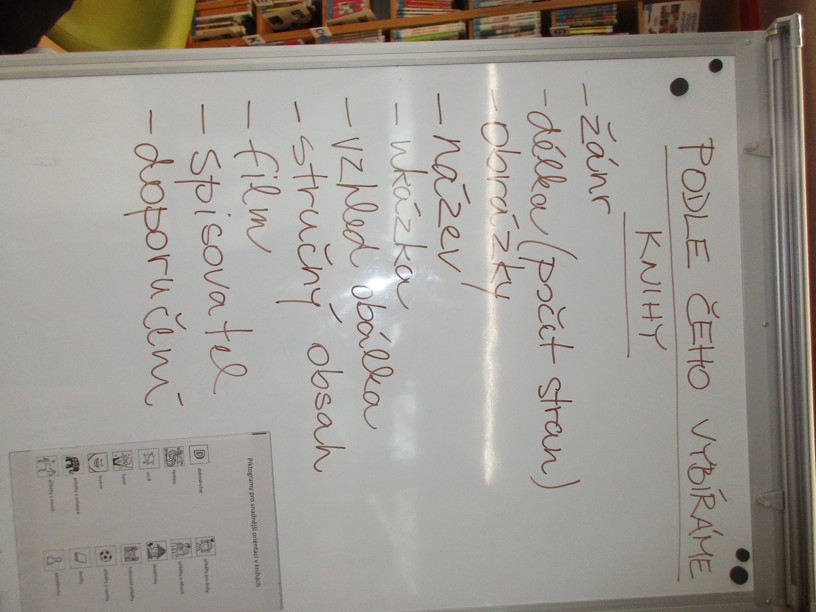 PODLE ČEHO VYBÍRÁME
KNIHY
- žánr
- délka (počet stran)
- obrázky
- název
- ukázka
- vzhled, obálka
- stručný obsah
- film
- spisovatel
- doporučení
Piktogramy pro snadnější orientaci v knihách
D